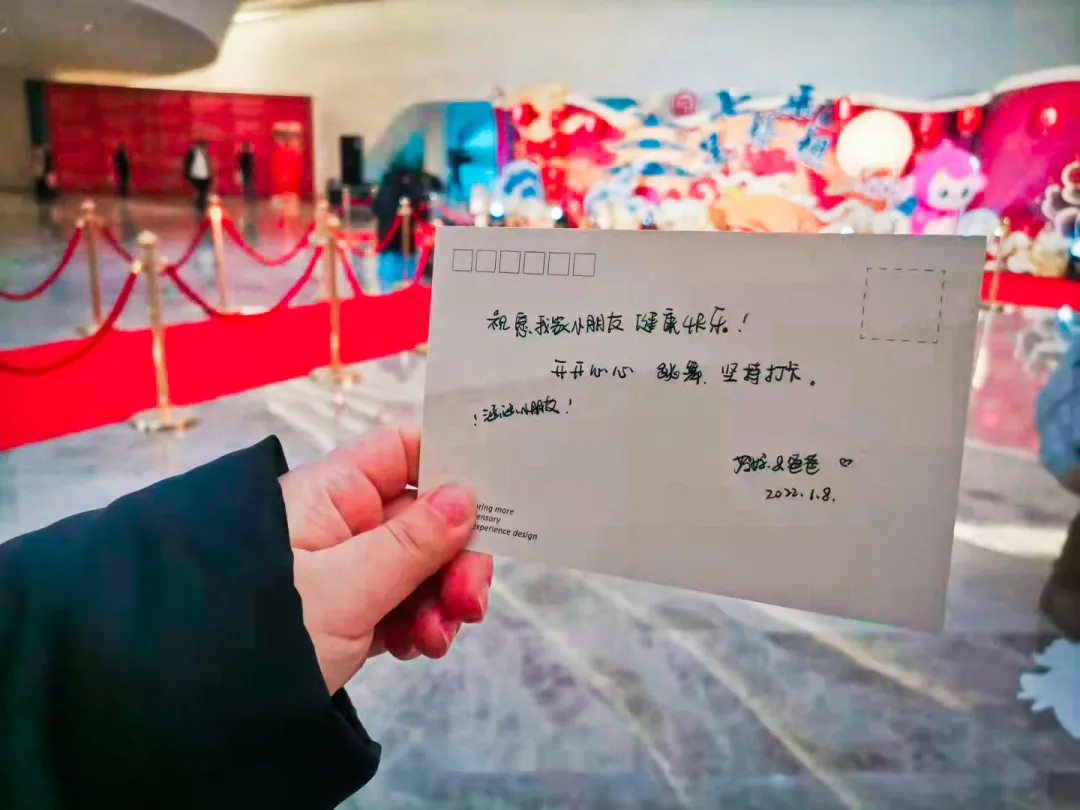 祝愿我家小朋友健康快乐!
开开心心 跳舞.坚持打卡。
小朋友!
爸爸 ♡
2022.1.8.
ring more
ensory
experience design